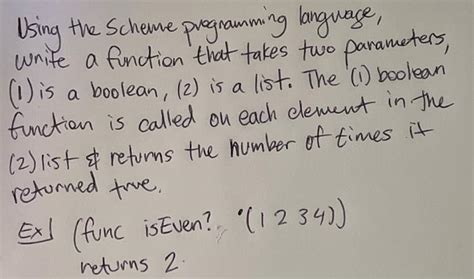 Using the Scheme programming language,
write a function that takes two parameters,
(1) is a boolean, (2) is a list. The (1) boolean
function is called on each element in the
(2) list & returns the number of times it
returned true.
Ex) (func isEven? '(1 2 3 4))
returns 2.